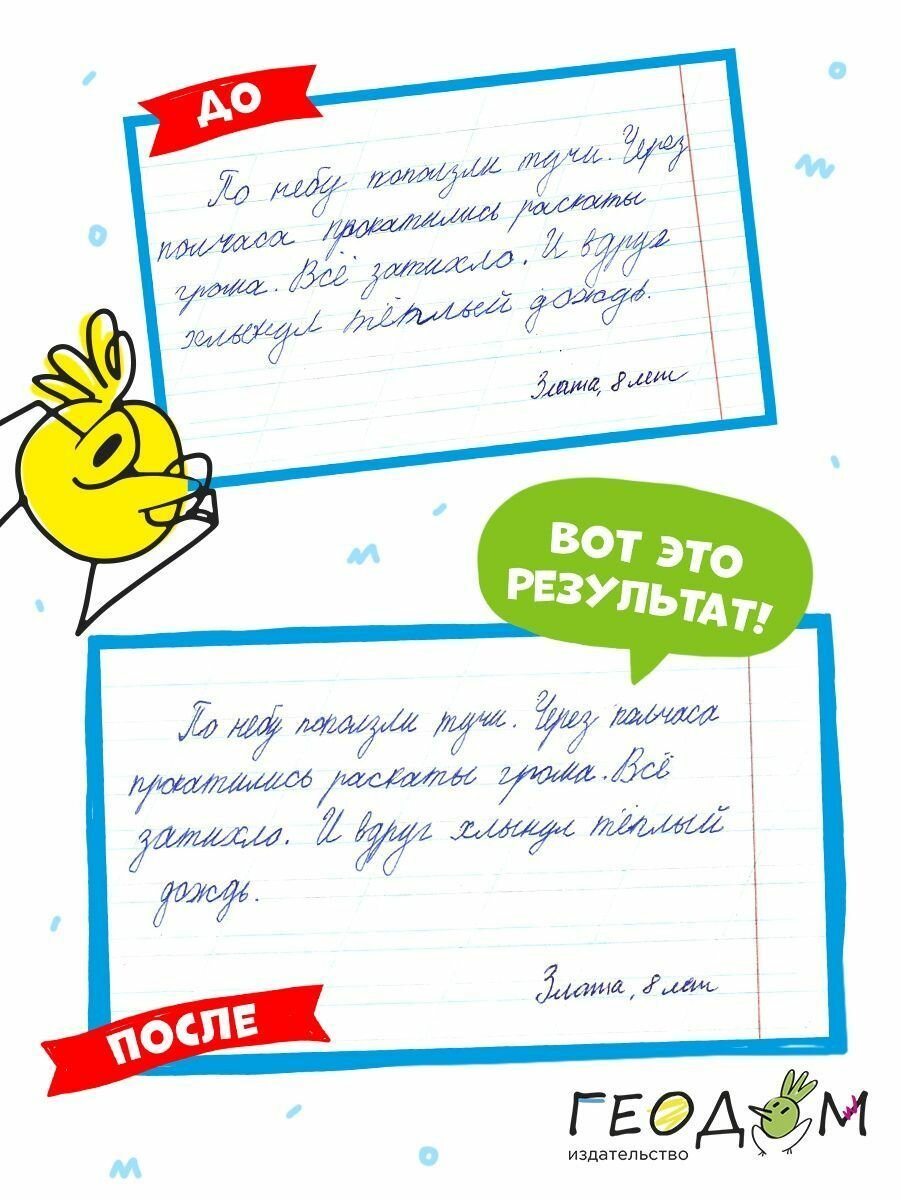 ДО
По небу поползли тучи. Через
полчаса прокатились раскаты
грома. Всё затихло. И вдруг
хлынул тёплый дождь.
Злата, 8 лет
ВОТ ЭТО
РЕЗУЛЬТАТ!
По небу поползли тучи. Через полчаса
прокатились раскаты грома. Всё
затихло. И вдруг хлынул тёплый
дождь.
Злата, 8 лет
ПОСЛЕ
ГЕОДОМ
издательство